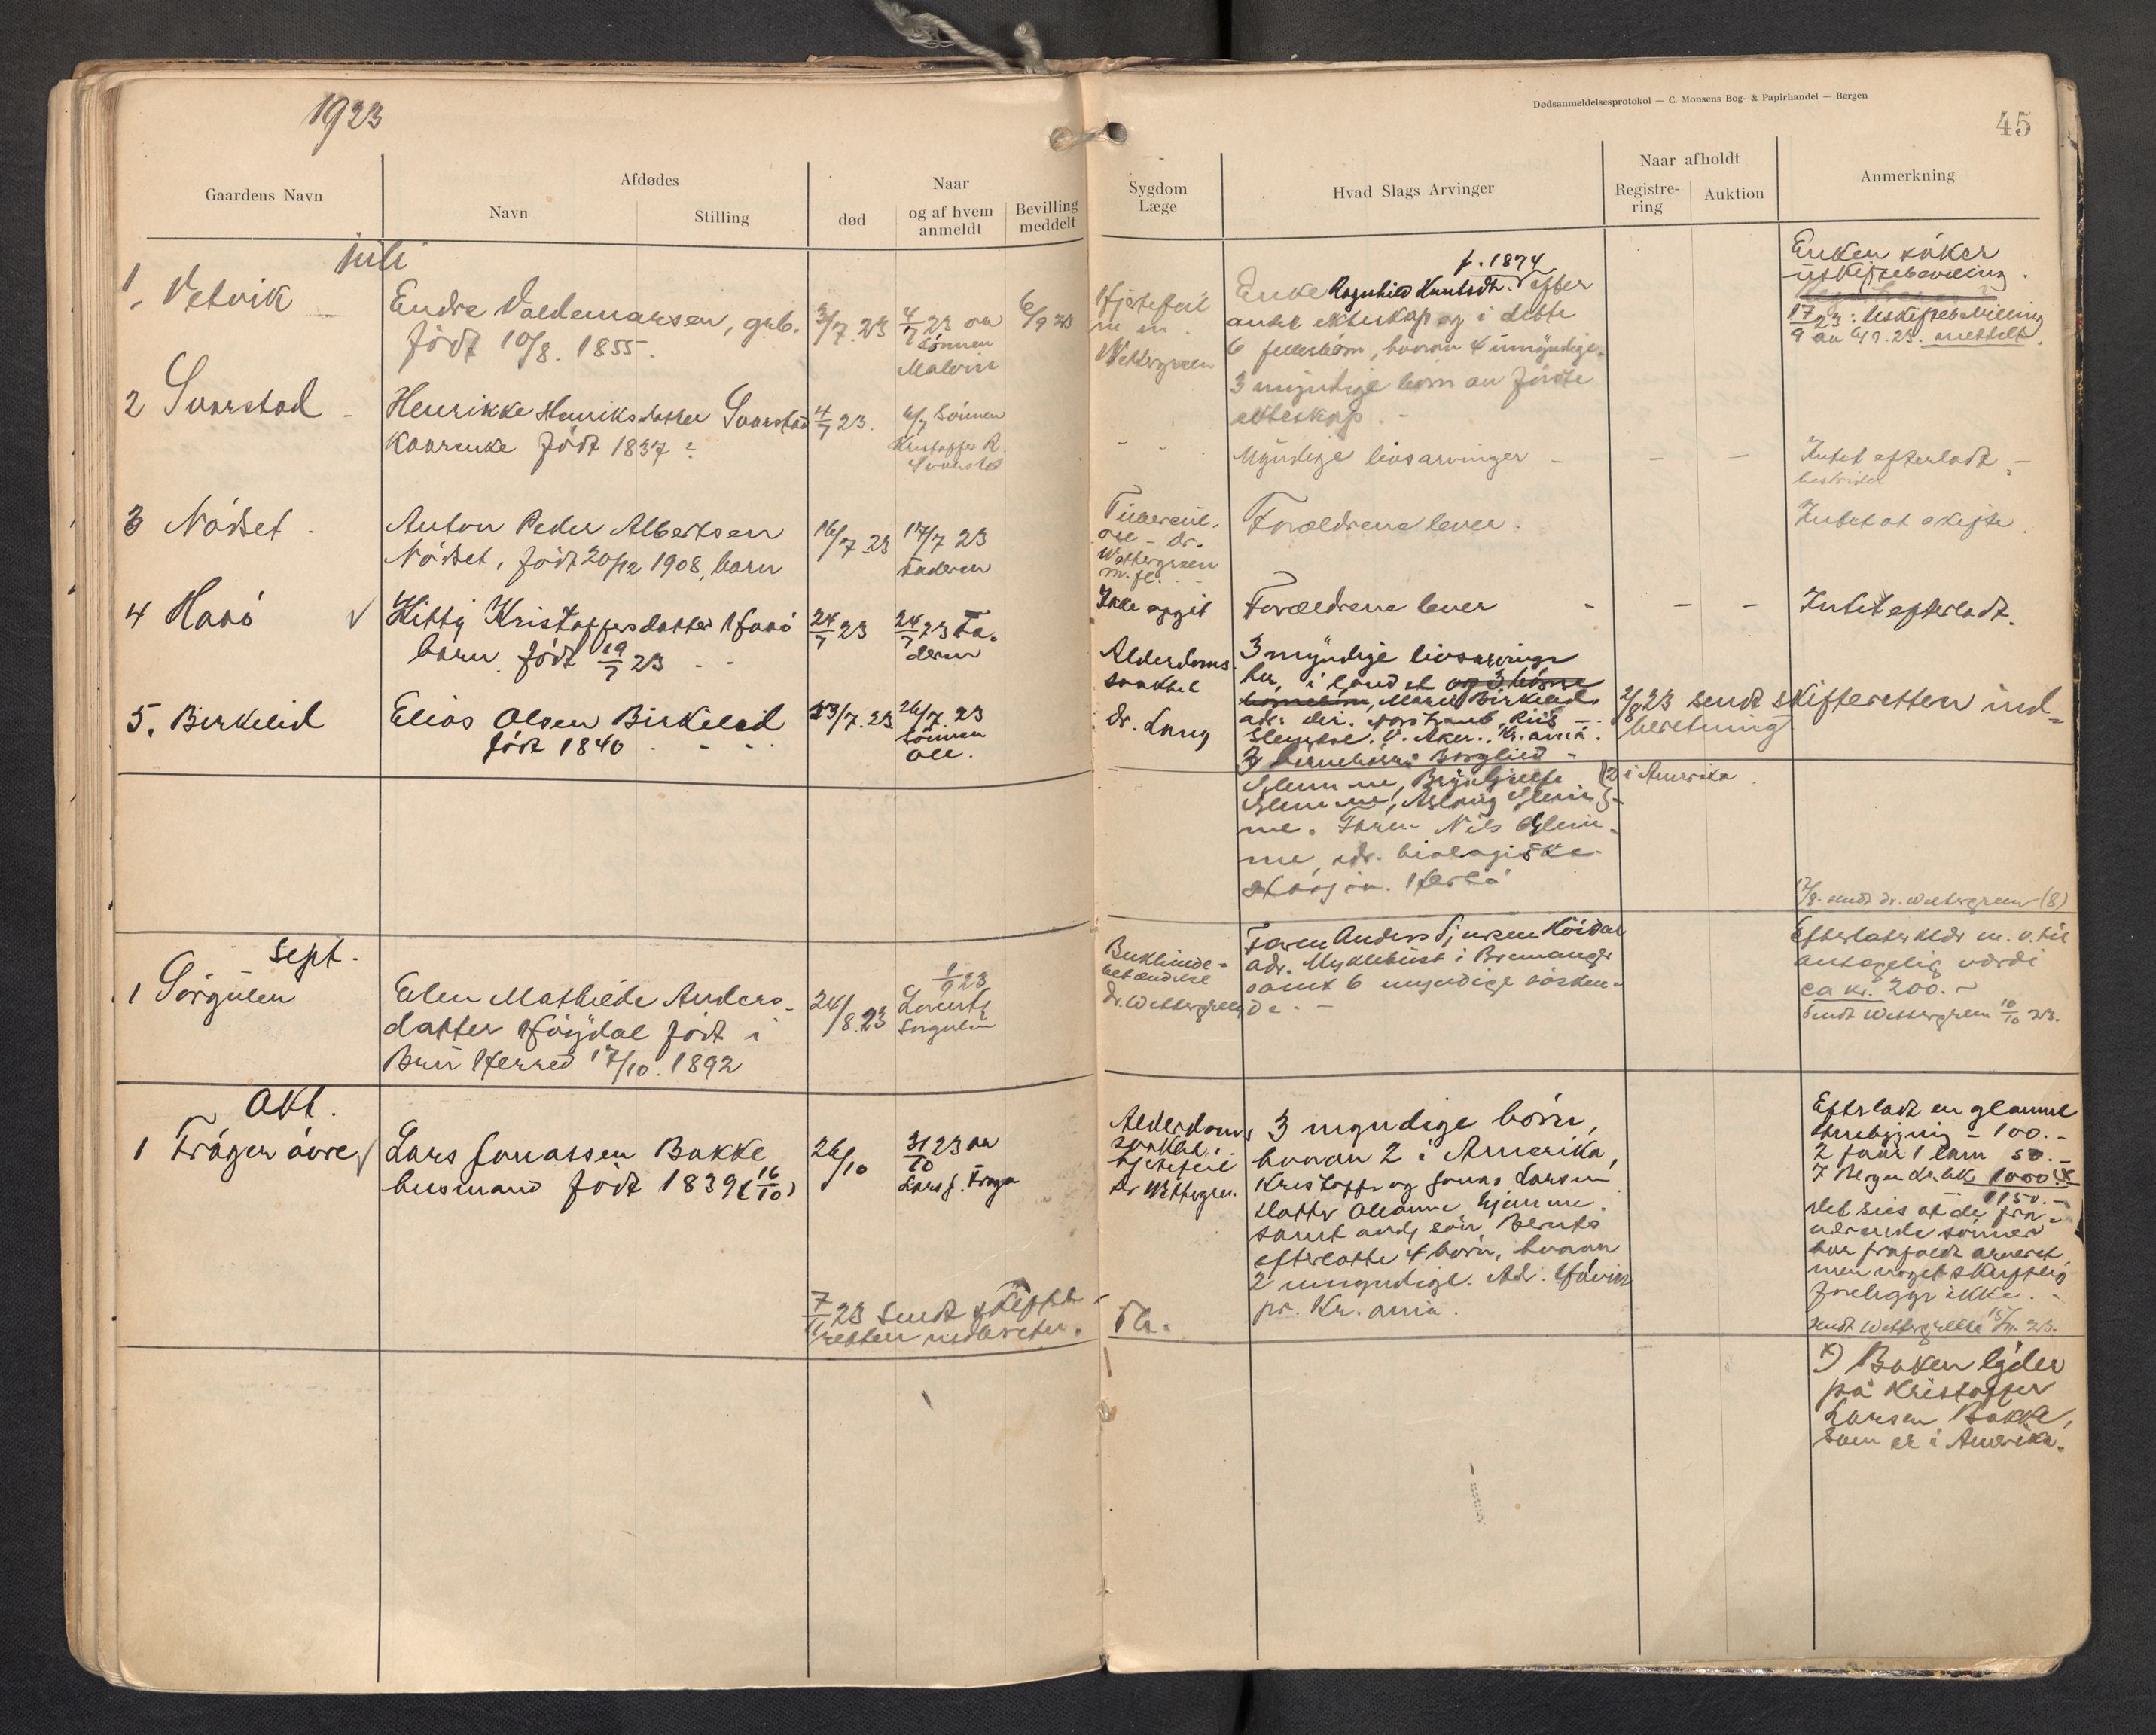 1923
Dødsanmeldelsesprotokol — C. Monsens Bog- & Papirhandel — Bergen
45
Gaardens Navn
Afdødes
Navn
Stilling
Naar
død
og af hvem
anmeldt
Bevilling
meddelt
Sygdom
Læge
Hvad Slags Arvinger
Naar afholdt
Registre-
ring
Auktion
Anmerkning
juli
1, Vetvik
Endre Valdemarsen, grb.
født 10/8. 1855.
3/7.23
4/7 23 av
sønnen
Malvin
6/9 23
Hjertefeil
Wettergreen
f. 1874
Enke Ragnhild Knutsdtr. efter
andet ekteskap og i dette
6 fellesbørn, hvorav 4 umyndige.
3 myndige børn av første
ekteskap.
Enken søker
uskiftebevilling.
17/9 23: Uskiftebevilling
av 6/9.23. meddelt.
2 Svarstad
Henrikke Henriksdatter Svarstad
kaarenke født 1837?
4/7 23.
6/7 Sønnen
Kristoffer R.
Svarstad
Myndige livsarvinger –
Intet efterladt –
3 Nødset.
Anton Peder Albertsen
Nødset, født 20/12 1908, barn
16/7.23
17/7 23
Faderen
Tubercul.
ose – dr.
Wettergreen
m. fl.
Forældrene lever.
Intet at skifte.
4 Haaø ✓
Hitty Kristoffersdatter Haaø
barn født 19/7 23
24/7 23
24/7 23 Fa-
deren
Ikke opgit
Forældrene lever
Intet efterladt.
5. Birkelid
Elias Olsen Birkeleid
født 1840
23/7.23
26/7.23
sønnen
Ole.
Alderdoms
svakhet
dr. Lang
3 myndige livsarvinger
her i landet og 3 børne
børnebørn, Marie Birkeland
Slemdal. V. Aker. Kr.ania.
3 børnebørn: Borglied
Glemme, Brynhjulf
Glemme, Aslaug Glem-
me. Faren Nils Glem-
me, adr. biologiske
stasjon. Herlø
2 i Amerika.
2/8 23 sendt skifteretten ind-
beretning
17/8. sendt dr. Wettergreen (8)
Sept.
1 Sørgulen
Elen Mathilde Anders-
datter Høydal født i
Bru Herred 17/10. 1892
24/8.23
1/9 23
Lorents
Sørgulen
Bukhinde-
betændelse
dr. Wettergreen
Faren Anders Sjursen Höidal
adr. Myklebust i Bremanger
samt 6 myndige søsken-
de. –
Efterlater kldr m. v. til
antagelig værdi
ca kr. 200. –
Sendt Wettergreen 10/10 23.
Okt.
1 Frøyen øvre ✓
Lars Jonassen Bakke
husmand født 1839 (16/10)
26/10
31/10 23 av
Lars J. Frøyen
Alderdoms
svakhet,
hjertefeil
Dr Wettergr.
3 myndige børn,
hvorav 2 i Amerika,
Kristoffer og Jonas Larsen
Datter Oleanna hjemme.
samt avdg søn Bernts
efterlatte 4 børn, hvorav
2 umyndige. Adr. Høvik
pr. Kr.ania.
Efterladt en gammel
– 100. –
2 faar 1 lam 50. –
I Bergens bk 1000 x
1150. –
Det sies at de fra-
værende sønner
har frafaldt arveret
men noget skriftlig
foreligger ikke. –
sendt Wettergreen 15/11. 23.
7/11 23 Sendt skifte-
retten indberetn.
x) Boken lyder
på Kristoffer
Larsen Bakke,
som er i Amerika.